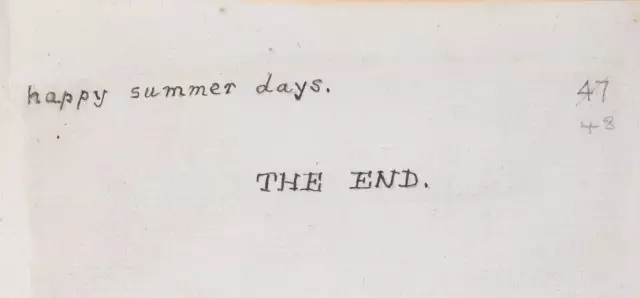 happy summer days. 47
48
THE END.